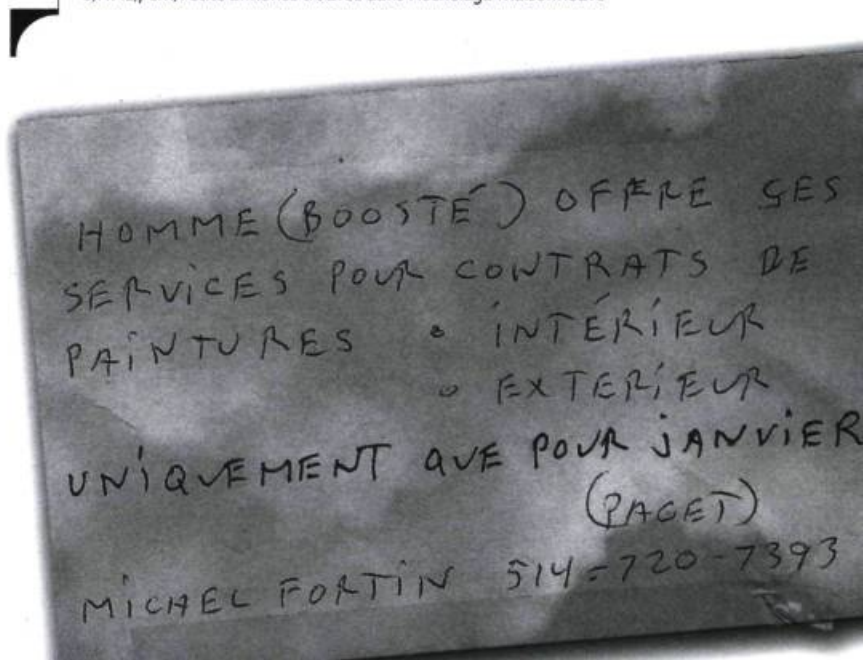 HOMME (BOOSTÉ) OFFRE SES
SERVICES POUR CONTRATS DE
PAINTURES • INTÉRIEUR
• EXTERIEUR
UNIQUEMENT QUE POUR JANVIER
(PAGET)
MICHEL FORTIN 514-720-7393